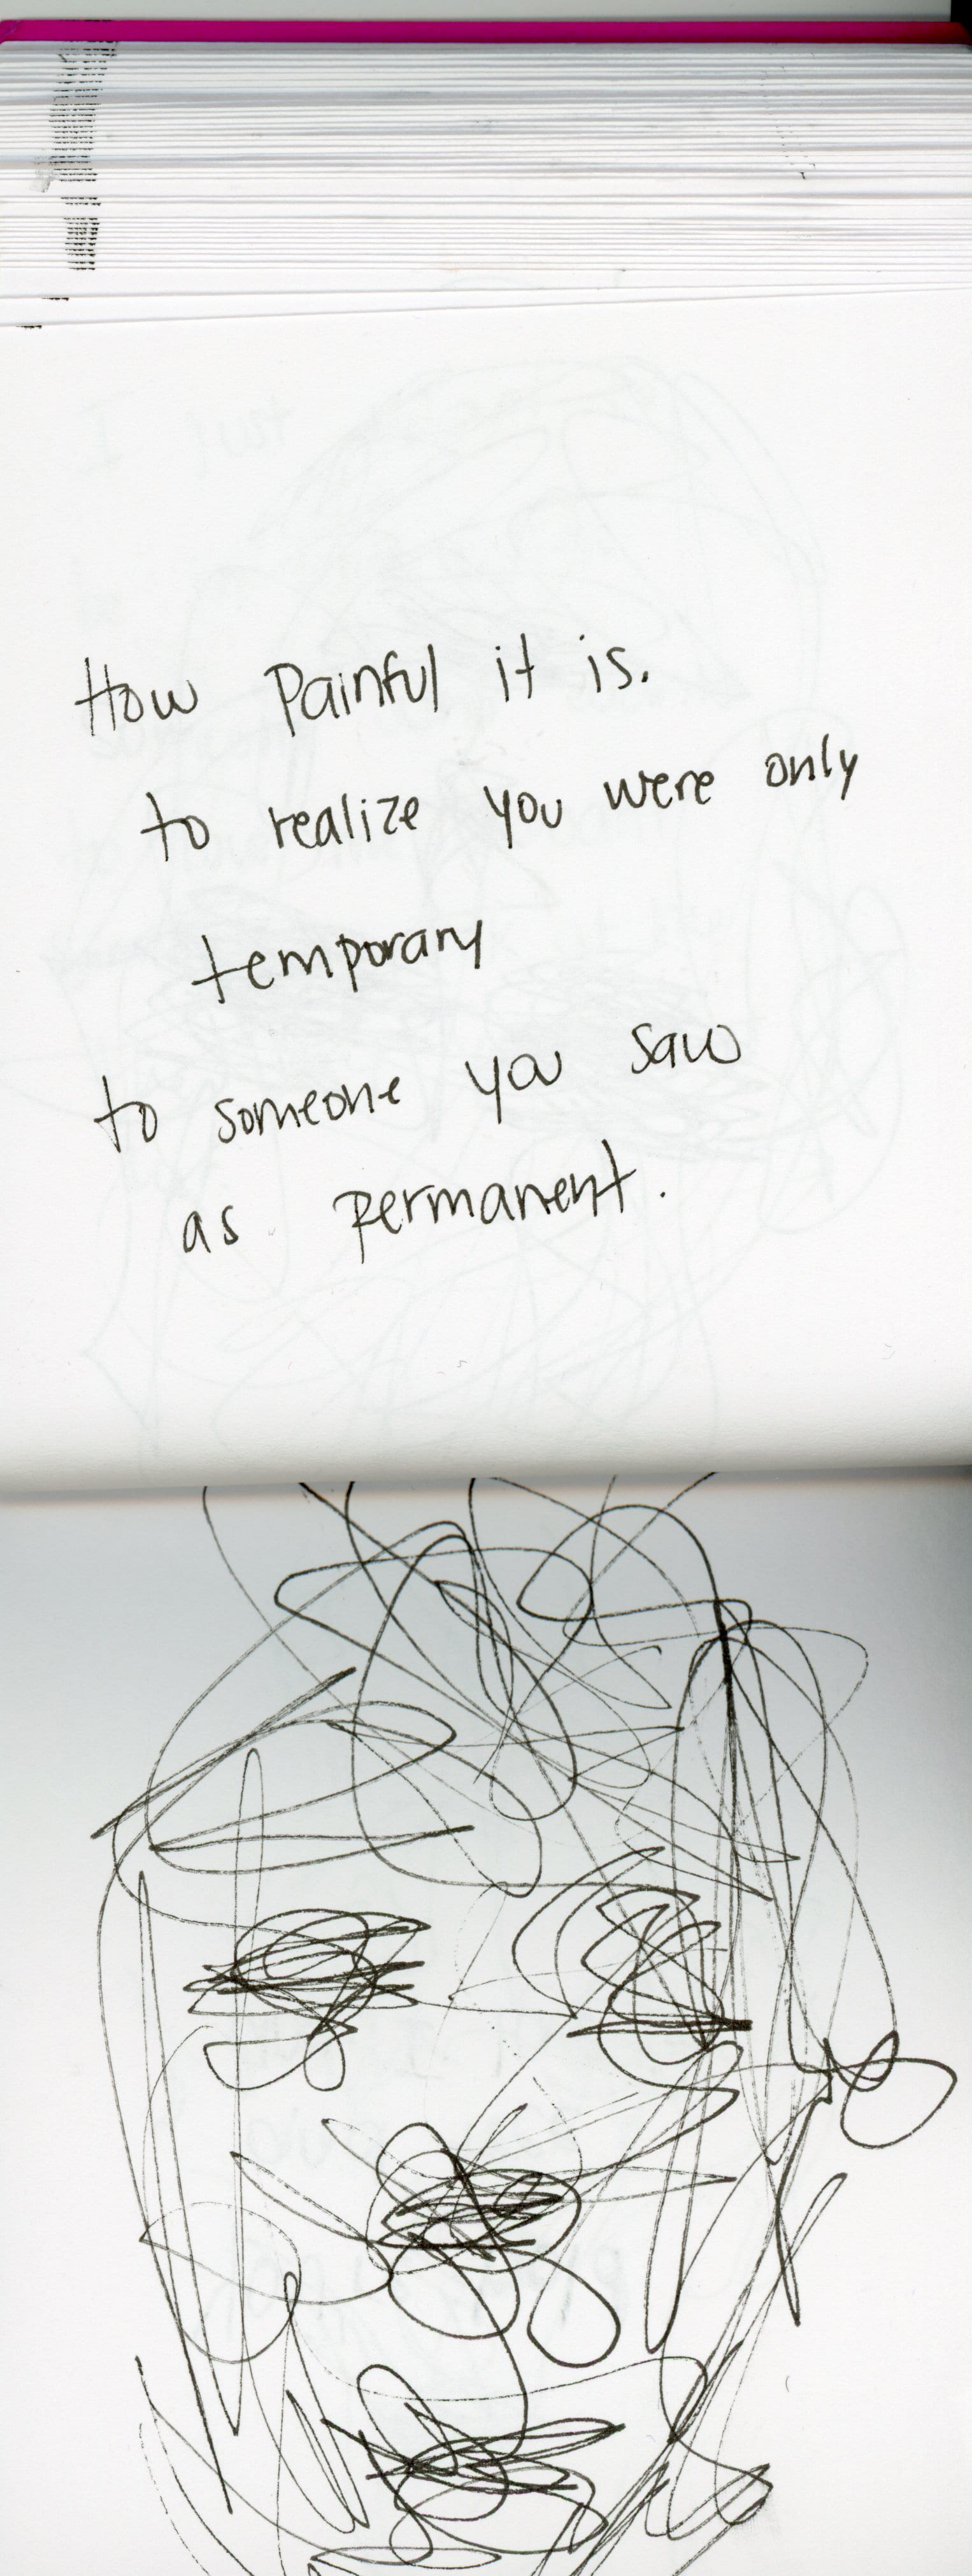 How Painful it is.
to realize you were only
temporary
to someone you saw
as permanent.